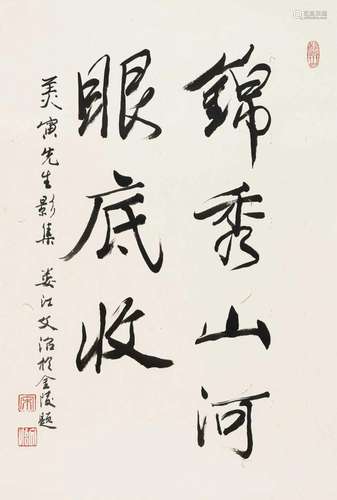 錦秀山河
眼底收
美寅先生影集 娄江文治於金陵题